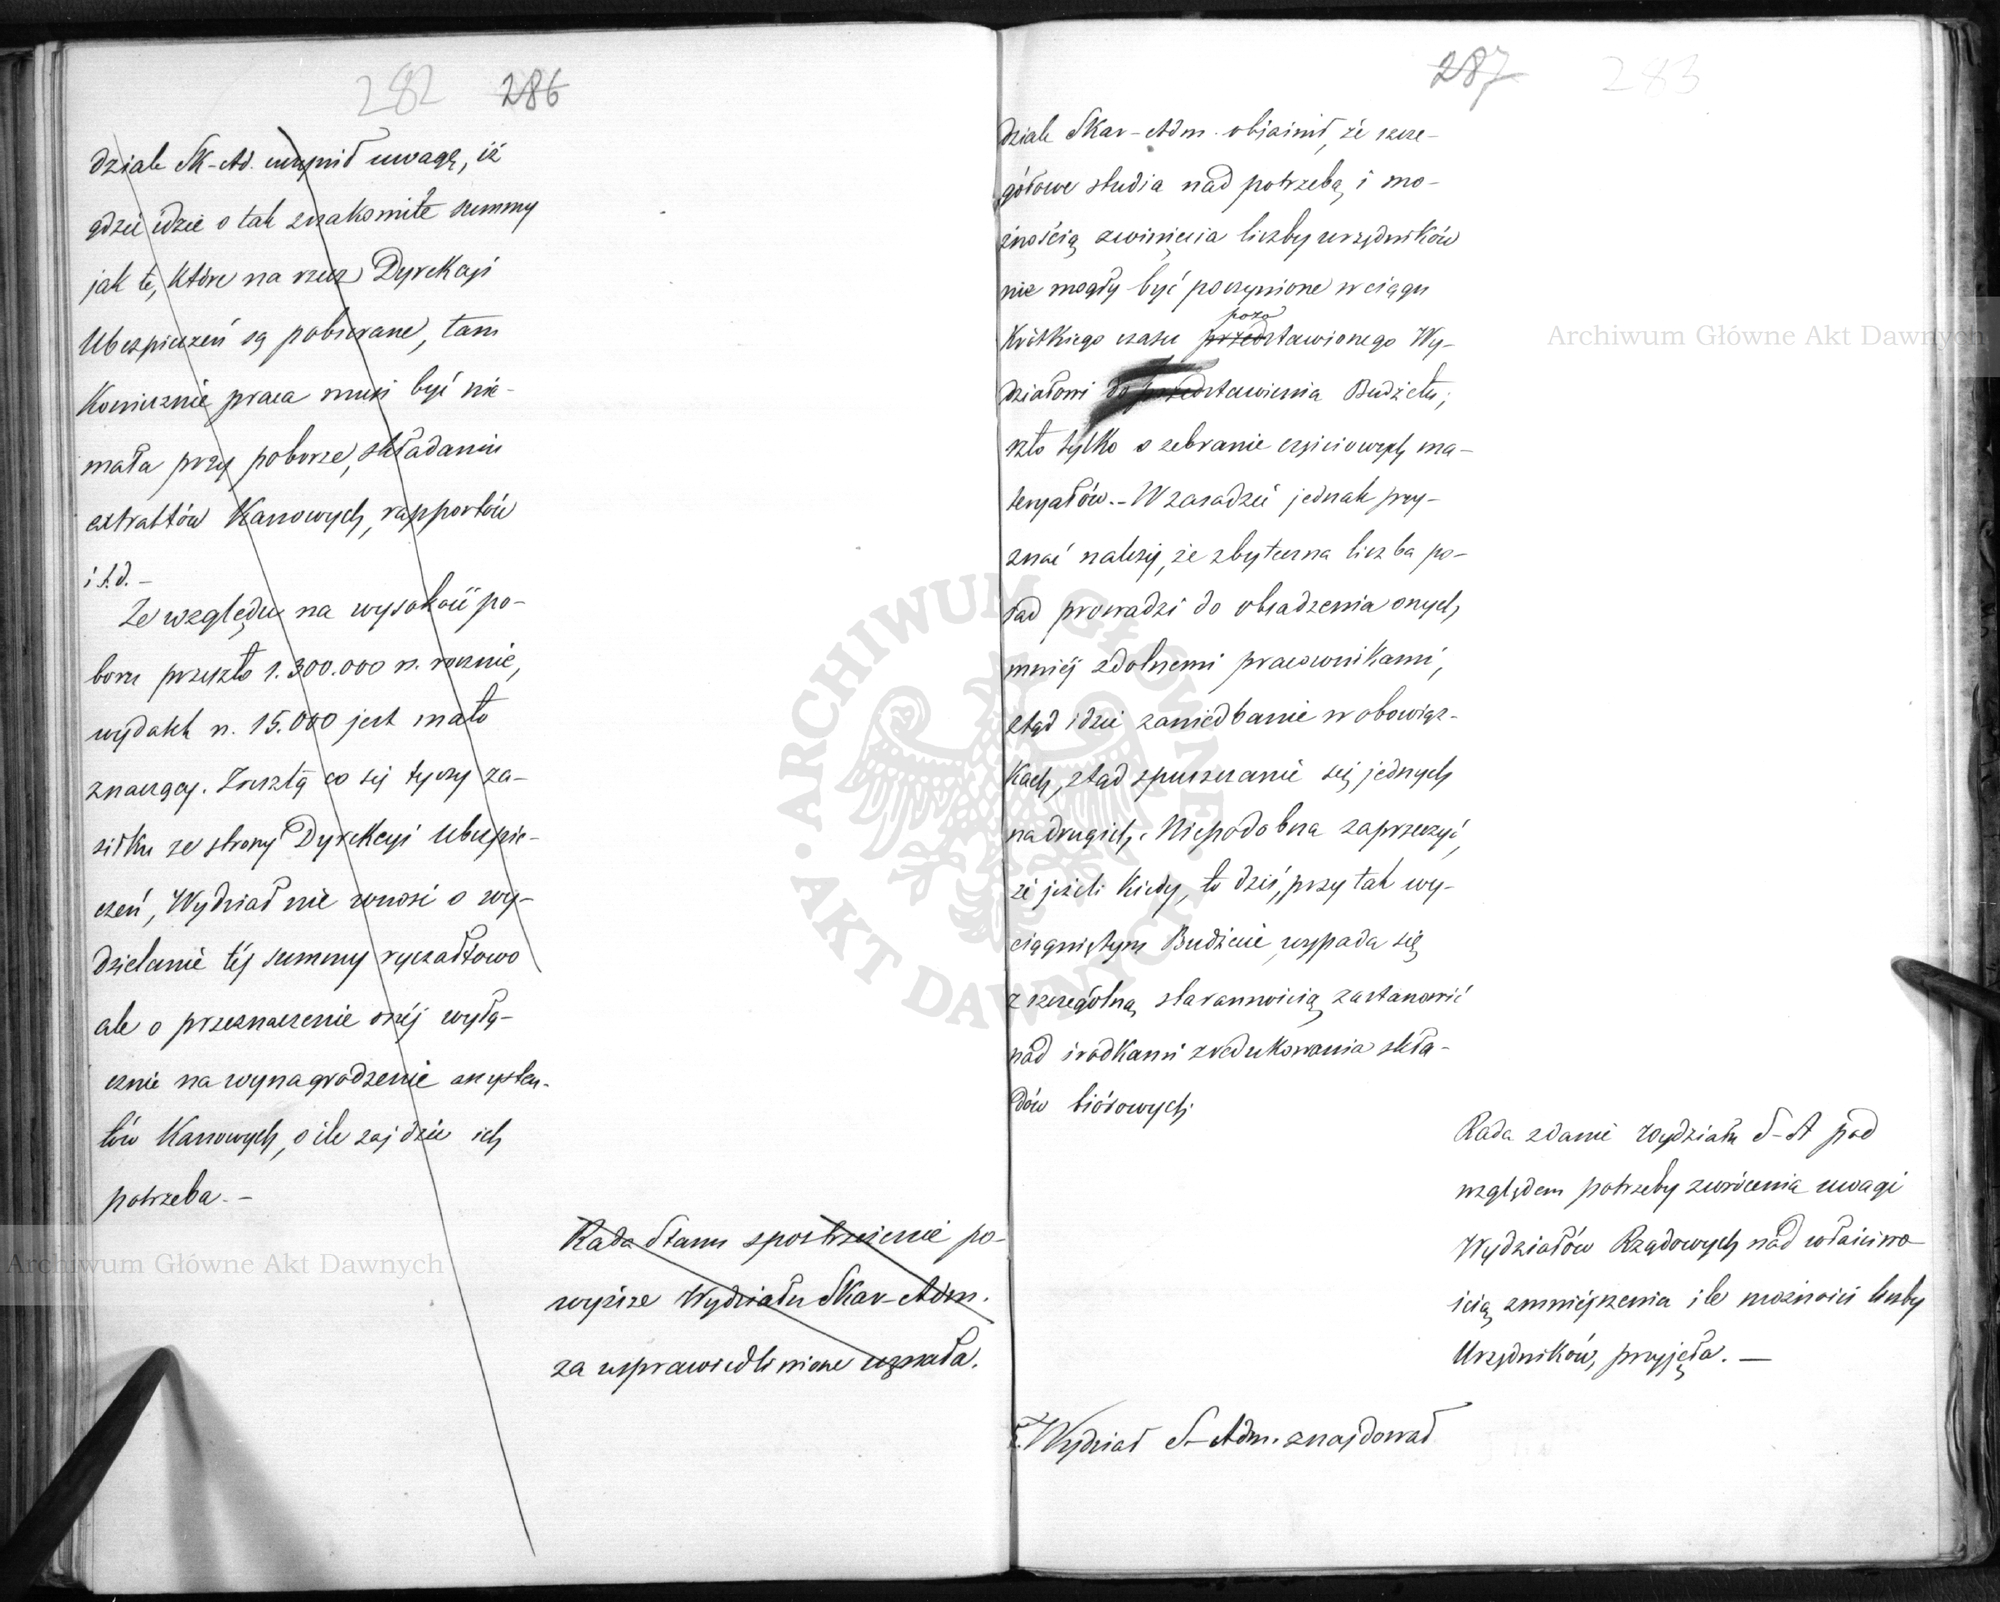 282 286
dziale SK-Ad. uczynił uwagę, iż
gdzie idzie o tak znakomite summy
jak te, które na rzecz Dyrekcyi
Ubezpieczeń są pobierane, tam
Koniecznie praca musi być nie-
mała przy poborze, składaniu
extraktów Kassowych, rapportów
i t.d. –
Ze względu na wysokość po-
boru przeszło 1.300.000 r. rocznie,
wydatek r. 15.000 jest mało
znaczący. Zresztą co się tyczy za-
siłku ze strony Dyrekcyi Ubezpie-
czeń, Wydział nie wnosi o wy-
dzielanie téj summy ryczałtowo
ale o przeznaczenie onéj wyłą-
cznie na wynagrodzenie assysten-
tów Kassowych, o ile zajdzie ich
potrzeba. –
Rada Stanu spostrzeżenie po-
wyższe Wydziału Skar-Adm.
za usprawiedliwione uznała.
287 283
dziale Skar-Adm. objaśnił, że szcze-
gółowe studia nad potrzebą i mo-
żnością zwinięcia liczby urzędników
nie mogły być poczynione w ciągu
Krótkiego czasu przedstawionego Wy-
pozo
działowi do przedstawienia Budżetu;
szło tylko o zebranie częściowych ma-
teryałów. – W zasadzie jednak przy-
znać należy, że zbyteczna liczba po-
sad prowadzi do obsadzenia onych,
mniéj zdolnemi pracownikami,
ztąd idzie zaniedbanie w obowiąz-
Kach, ztąd spuszczanie się jednych
na drugich. Niepodobna zaprzeczyć,
że jeżeli Kiedy, to dziś, przy tak wy-
ciągniętym Budżecie, wypada się
z szczególną starannością zastanowić
nad środkami zredukowania skła-
dów biórowych.
Rada zdanie Wydziału S-A pod
względem potrzeby zwrócenia uwagi
Wydziałów Rządowych nad właściwo-
ścią zmniejszenia ile możności liczby
Urzędników, przyjęła. —
Wydział S-Adm. znajdował
Archiwum Główne Akt Dawnych
Archiwum Główne Akt Dawnych
· ARCHIWUM GŁÓWNE · AKT DAWNYCH